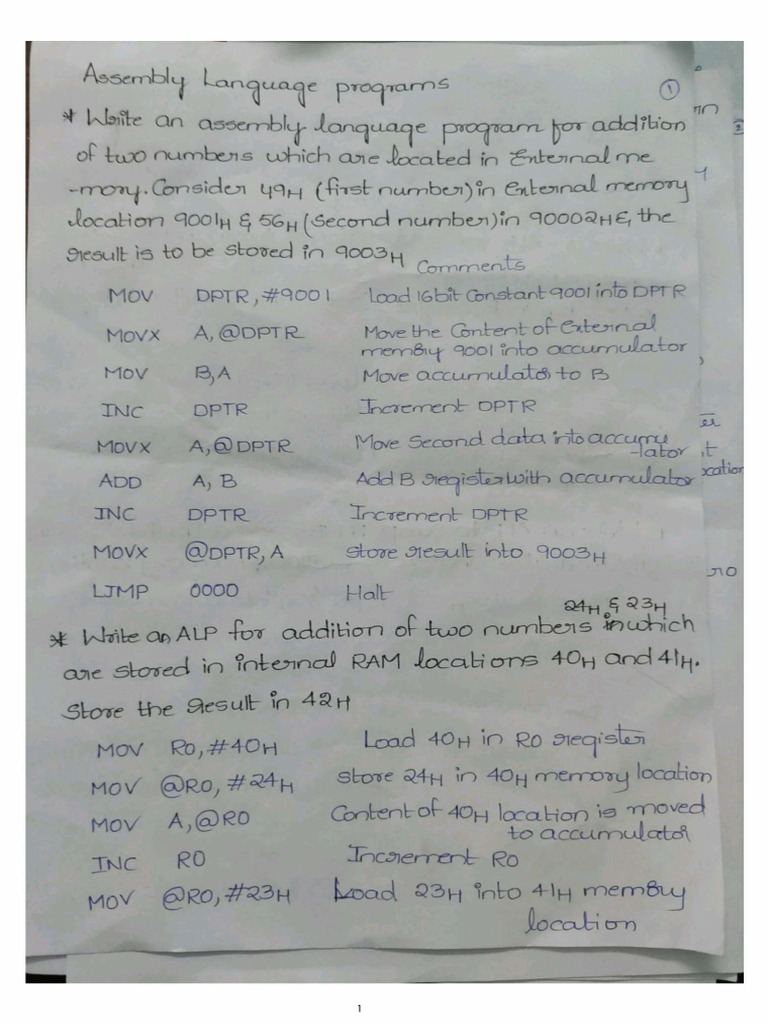 Assembly Language programs
1
* Write an assembly language program for addition
of two numbers which are located in External me
-mory. Consider 49H (first number) in external memory
location 9001H & 56H (second number) in 90002H &, the
result is to be stored in 9003H
Comments
MOV DPTR, #9001 Load 16bit Constant 9001 into DPTR
MOVX A, @DPTR Move the Content of External
memory 9001 into accumulator
MOV B, A Move accumulator to B
INC DPTR Increment DPTR
MOVX A, @DPTR Move Second data into accumu
-lator
ADD A, B Add B register with accumulator
INC DPTR Increment DPTR
MOVX @DPTR, A store result into 9003H
LJMP 0000 Halt
24H & 23H
* Write an ALP for addition of two numbers in which
are stored in internal RAM locations 40H and 41H.
Store the result in 42H
MOV R0, #40H Load 40H in R0 register
MOV @R0, #24H store 24H in 40H memory location
MOV A, @R0 Content of 40H location is moved
to accumulator
INC R0 Increment R0
MOV @R0, #23H Load 23H into 41H memory
location
1